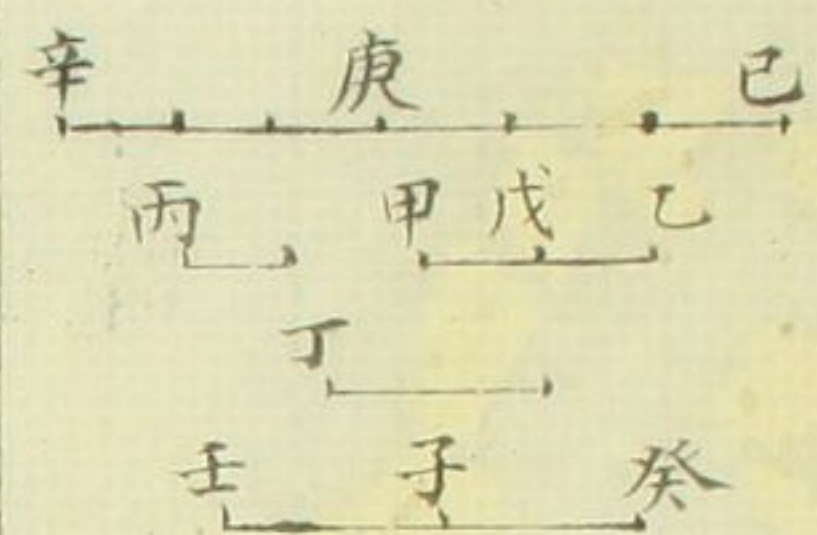 辛 庚 己
丙 甲 戊 乙
丁
壬 子 癸